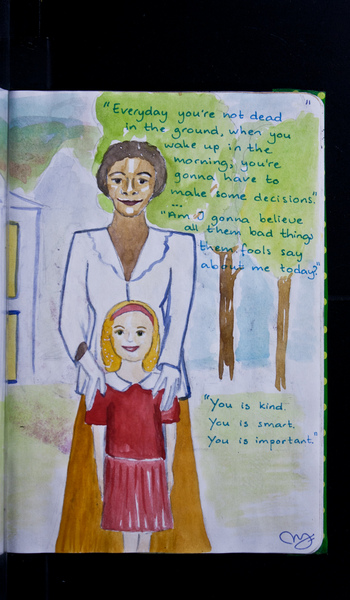 "Everyday you're not dead "
in the ground, when you
wake up in the
morning, you're
gonna have to
make some decisions."
...
"Am I gonna believe
all them bad things
them fools say
about me today?"
"You is kind.
You is smart.
You is important."